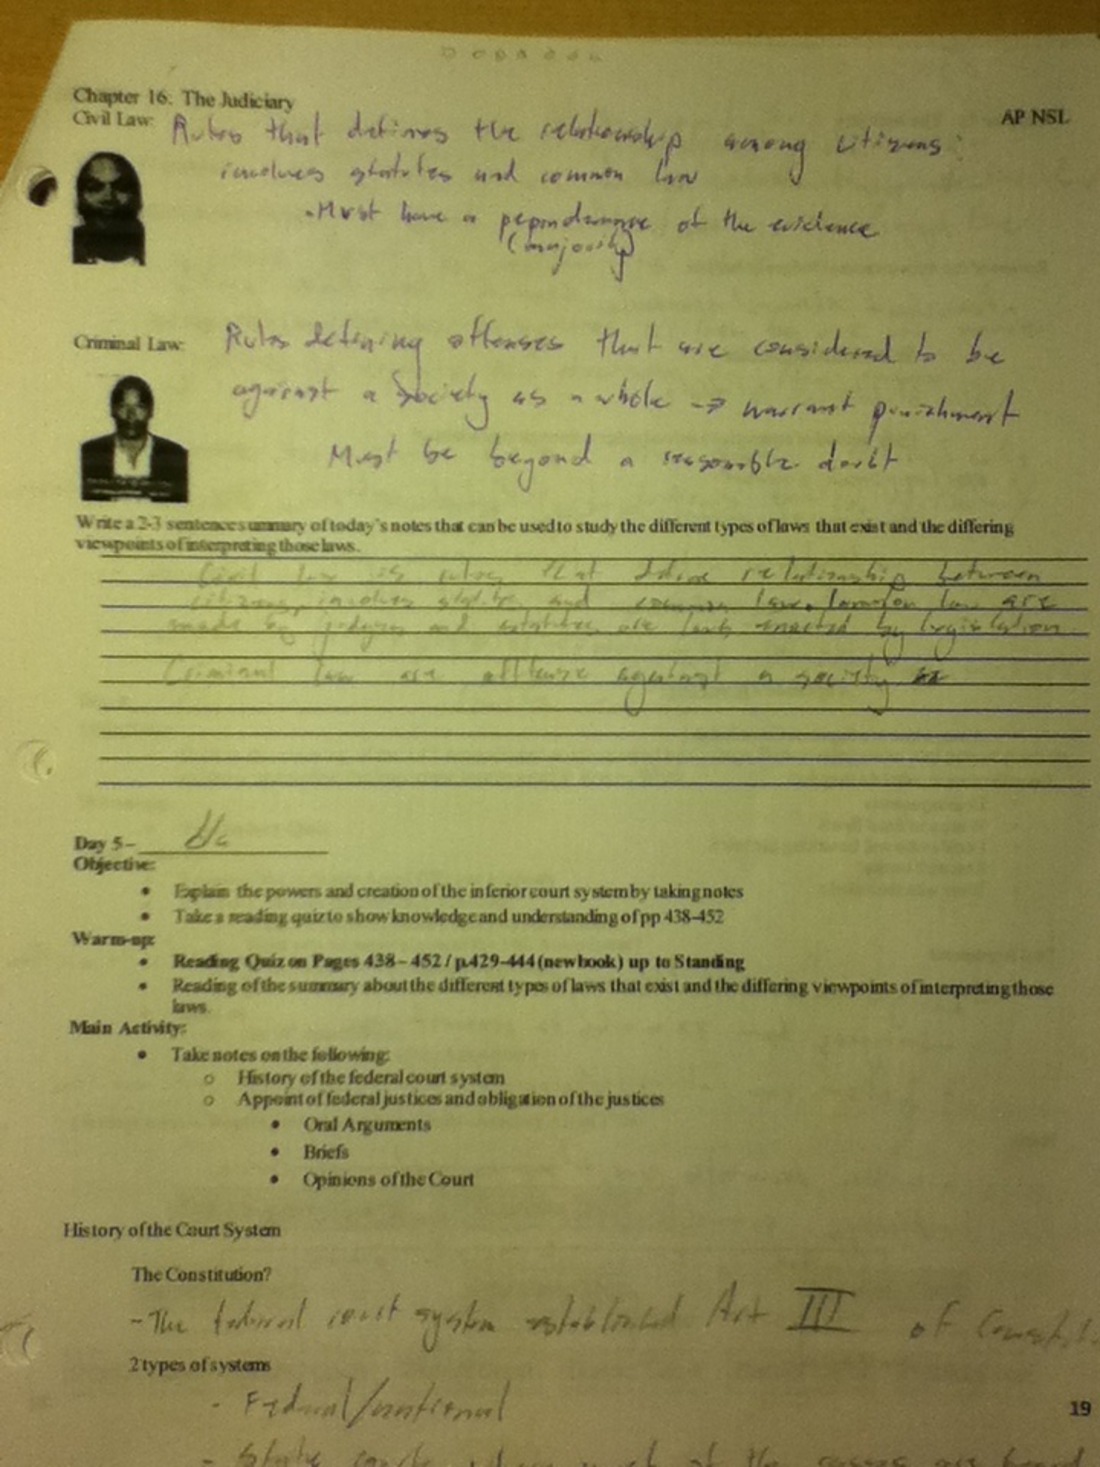 Chapter 16: The Judiciary
AP NSL
Civil Law: Rules that defines the relationship among citizens:
involves statutes and common law
- Must have a pepondamance of the evidence
(majority)
Criminal Law: Rules defining offenses that are considered to be
against a society as a whole → warrant punishment
Must be beyond a reasonable doubt
Write a 2-3 sentence summary of today's notes that can be used to study the different types of laws that exist and the differing
viewpoints of interpreting those laws.
Civil law is rules that define relationship between
citizens, involves statutes and common law. Common law are
made by judges and statutes are laws enacted by legislation.
Criminal law are offense against a society
Day 5-
Objective:
• Explain the powers and creation of the inferior court system by taking notes
• Take a reading quiz to show knowledge and understanding of pp 438-452
Warm-up:
• Reading Quiz on Pages 438 – 452 / p.429-444 (new book) up to Standing
• Reading of the summary about the different types of laws that exist and the differing viewpoints of interpreting those
laws.
Main Activity:
• Take notes on the following:
o History of the federal court system
o Appoint of federal justices and obligation of the justices
• Oral Arguments
• Briefs
• Opinions of the Court
History of the Court System
The Constitution?
- The federal court system established Art III of
2 types of systems
- Federal/national
19
- State of the cases are heard